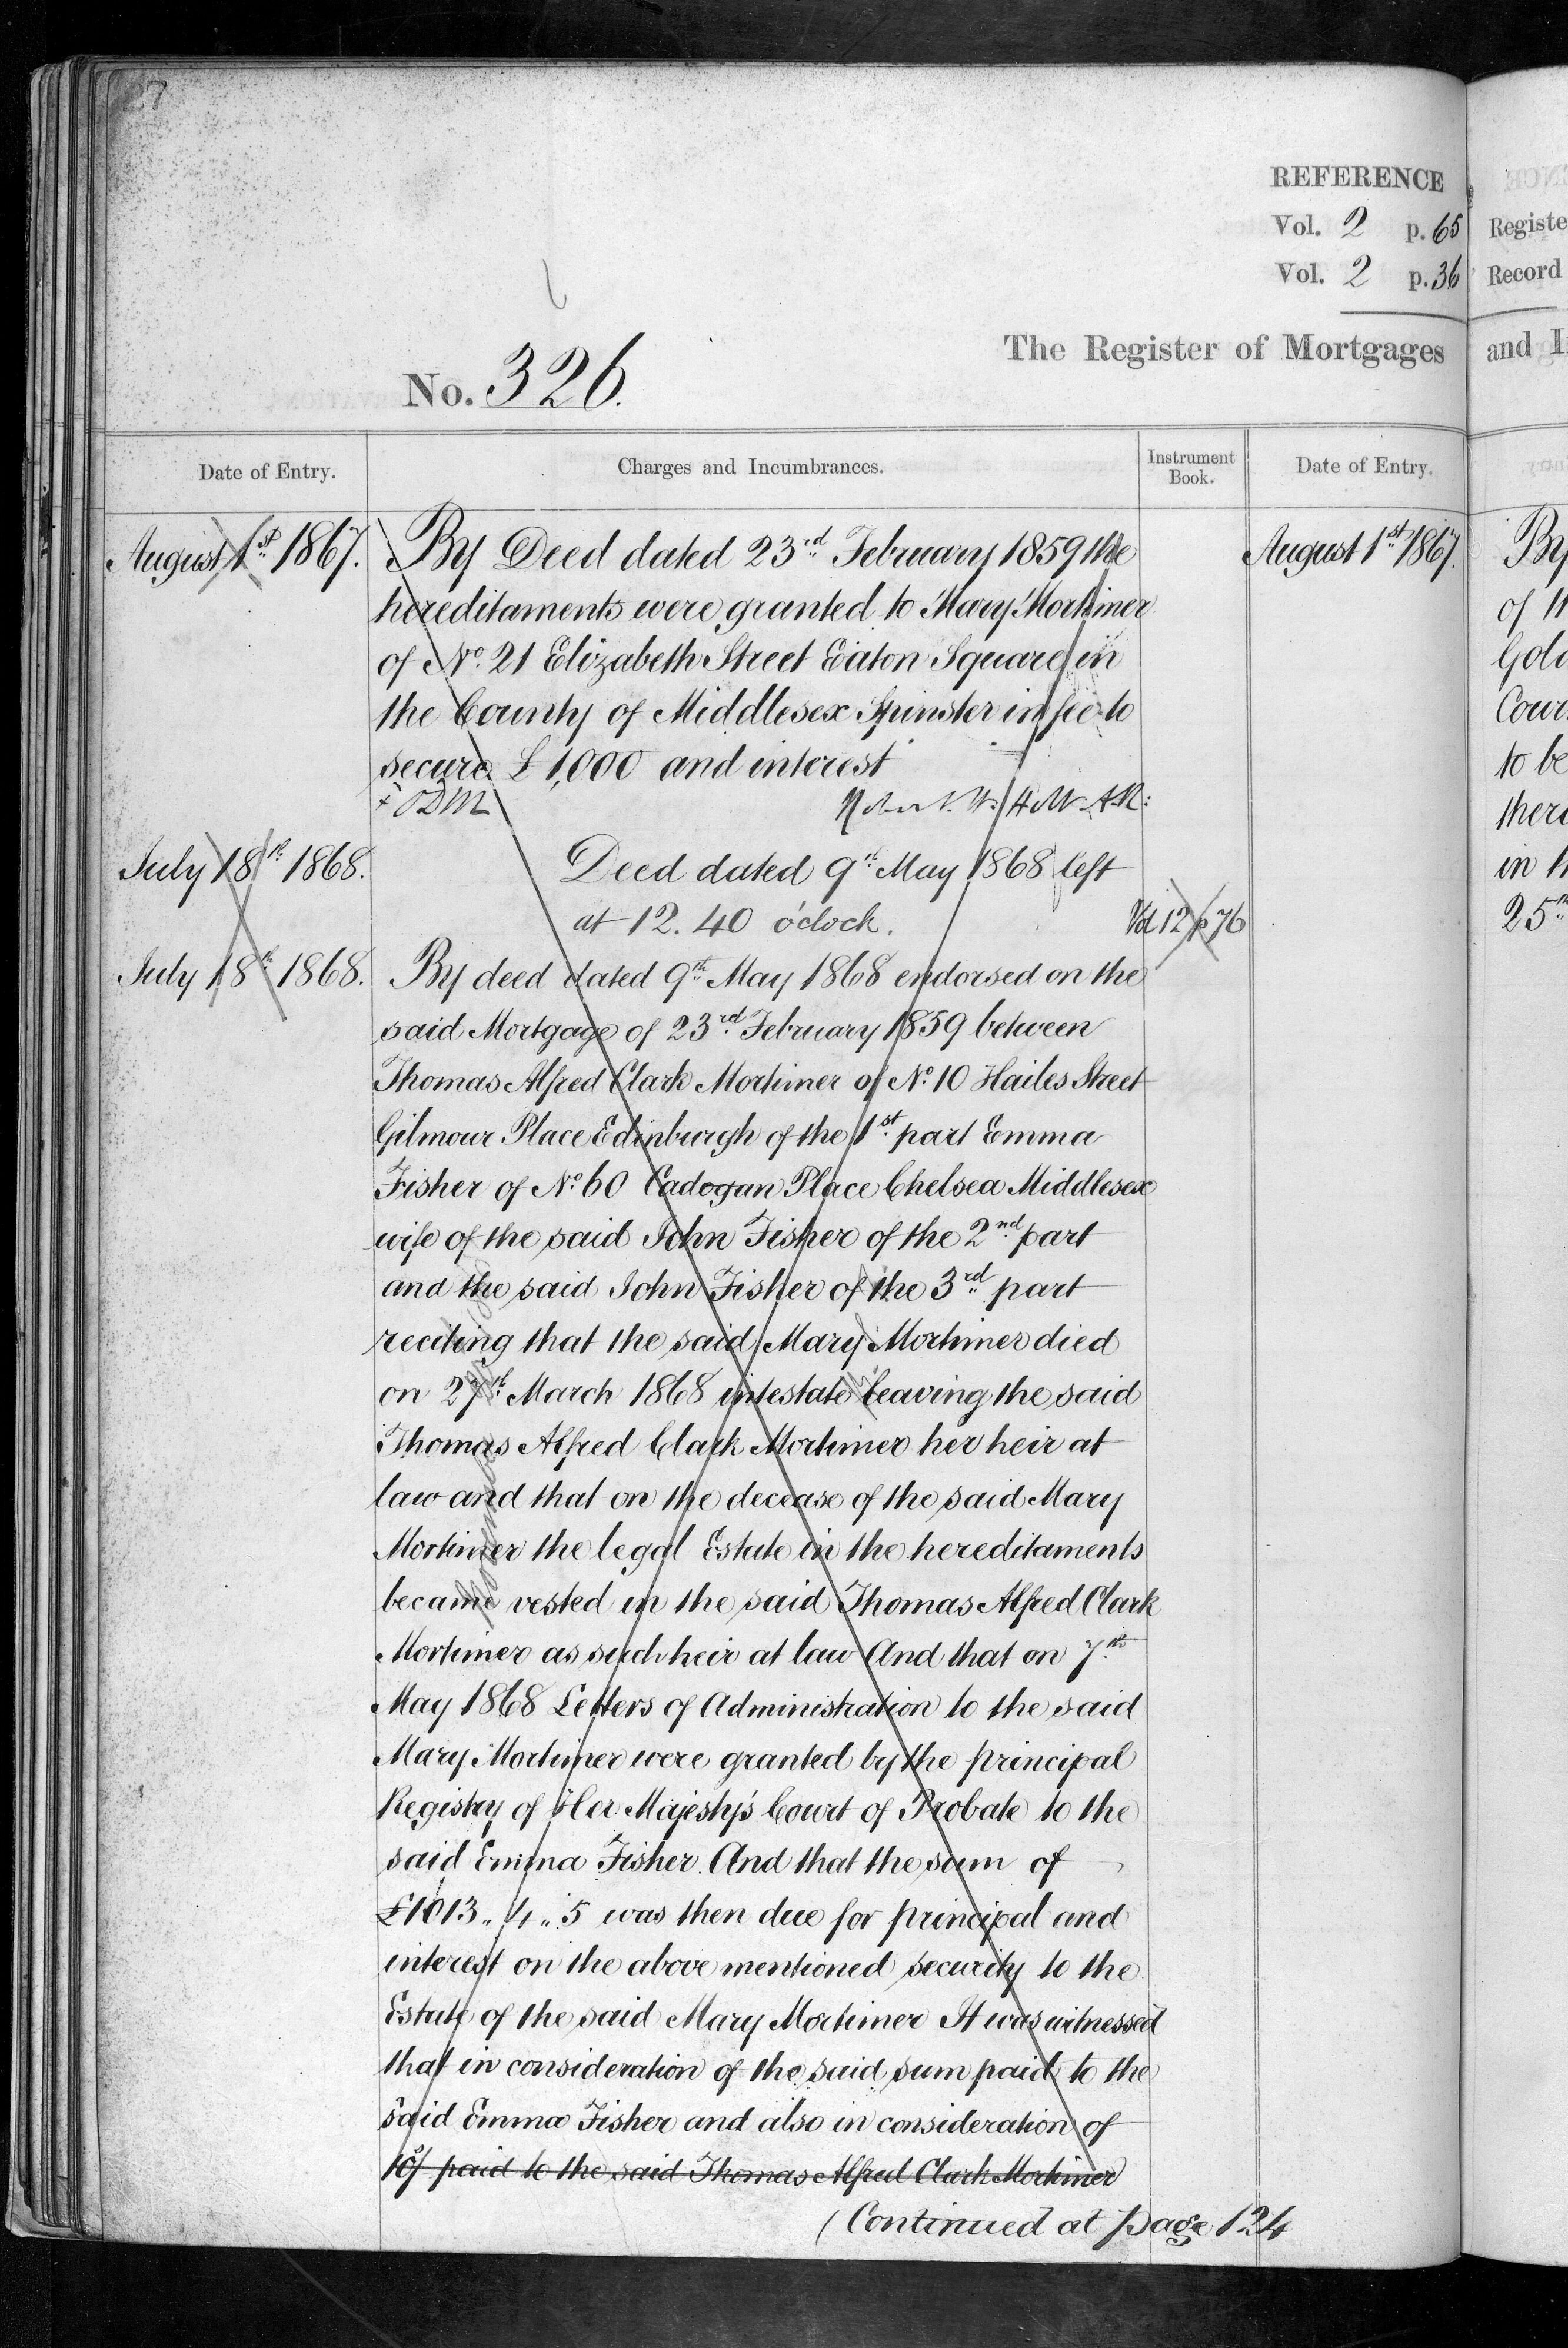 REFERENCE
Vol. 2 p. 65 Registe
Vol. 2 p. 36 Record
The Register of Mortgages and I
No. 326.
Date of Entry. Charges and Incumbrances. Instrument Book. Date of Entry.
August 1st 1867. By Deed dated 23rd February 1859 the August 1st 1867. By
hereditaments were granted to Mary Mortimer of
of No. 21 Elizabeth Street Eaton Square in Gold
the County of Middlesex Spinster in fee to Cour
secure £1,000 and interest to be
ther
July 18th 1868. Deed dated 9th May 1868 left in
at 12.40 o'clock. Vol 12 p 76 25th
July 18th 1868. By deed dated 9th May 1868 endorsed on the
said Mortgage of 23rd February 1859 between
Thomas Alfred Clark Mortimer of No. 10 Hailes Street
Gilmour Place Edinburgh of the 1st part Emma
Fisher of No. 60 Cadogan Place Chelsea Middlesex
wife of the said John Fisher of the 2nd part
and the said John Fisher of the 3rd part
reciting that the said Mary Mortimer died
on 27th March 1868 intestate leaving the said
Thomas Alfred Clark Mortimer her heir at
law and that on the decease of the said Mary
Mortimer the legal Estate in the hereditaments
became vested in the said Thomas Alfred Clark
Mortimer as such heir at law And that on 7th
May 1868 Letters of Administration to the said
Mary Mortimer were granted by the principal
Registry of Her Majesty's Court of Probate to the
said Emma Fisher. And that the sum of
£1013„4„5 was then due for principal and
interest on the above mentioned security to the
Estate of the said Mary Mortimer It was witnessed
that in consideration of the said sum paid to the
said Emma Fisher and also in consideration of
10/ paid to the said Thomas Alfred Clark Mortimer
(Continued at page 124